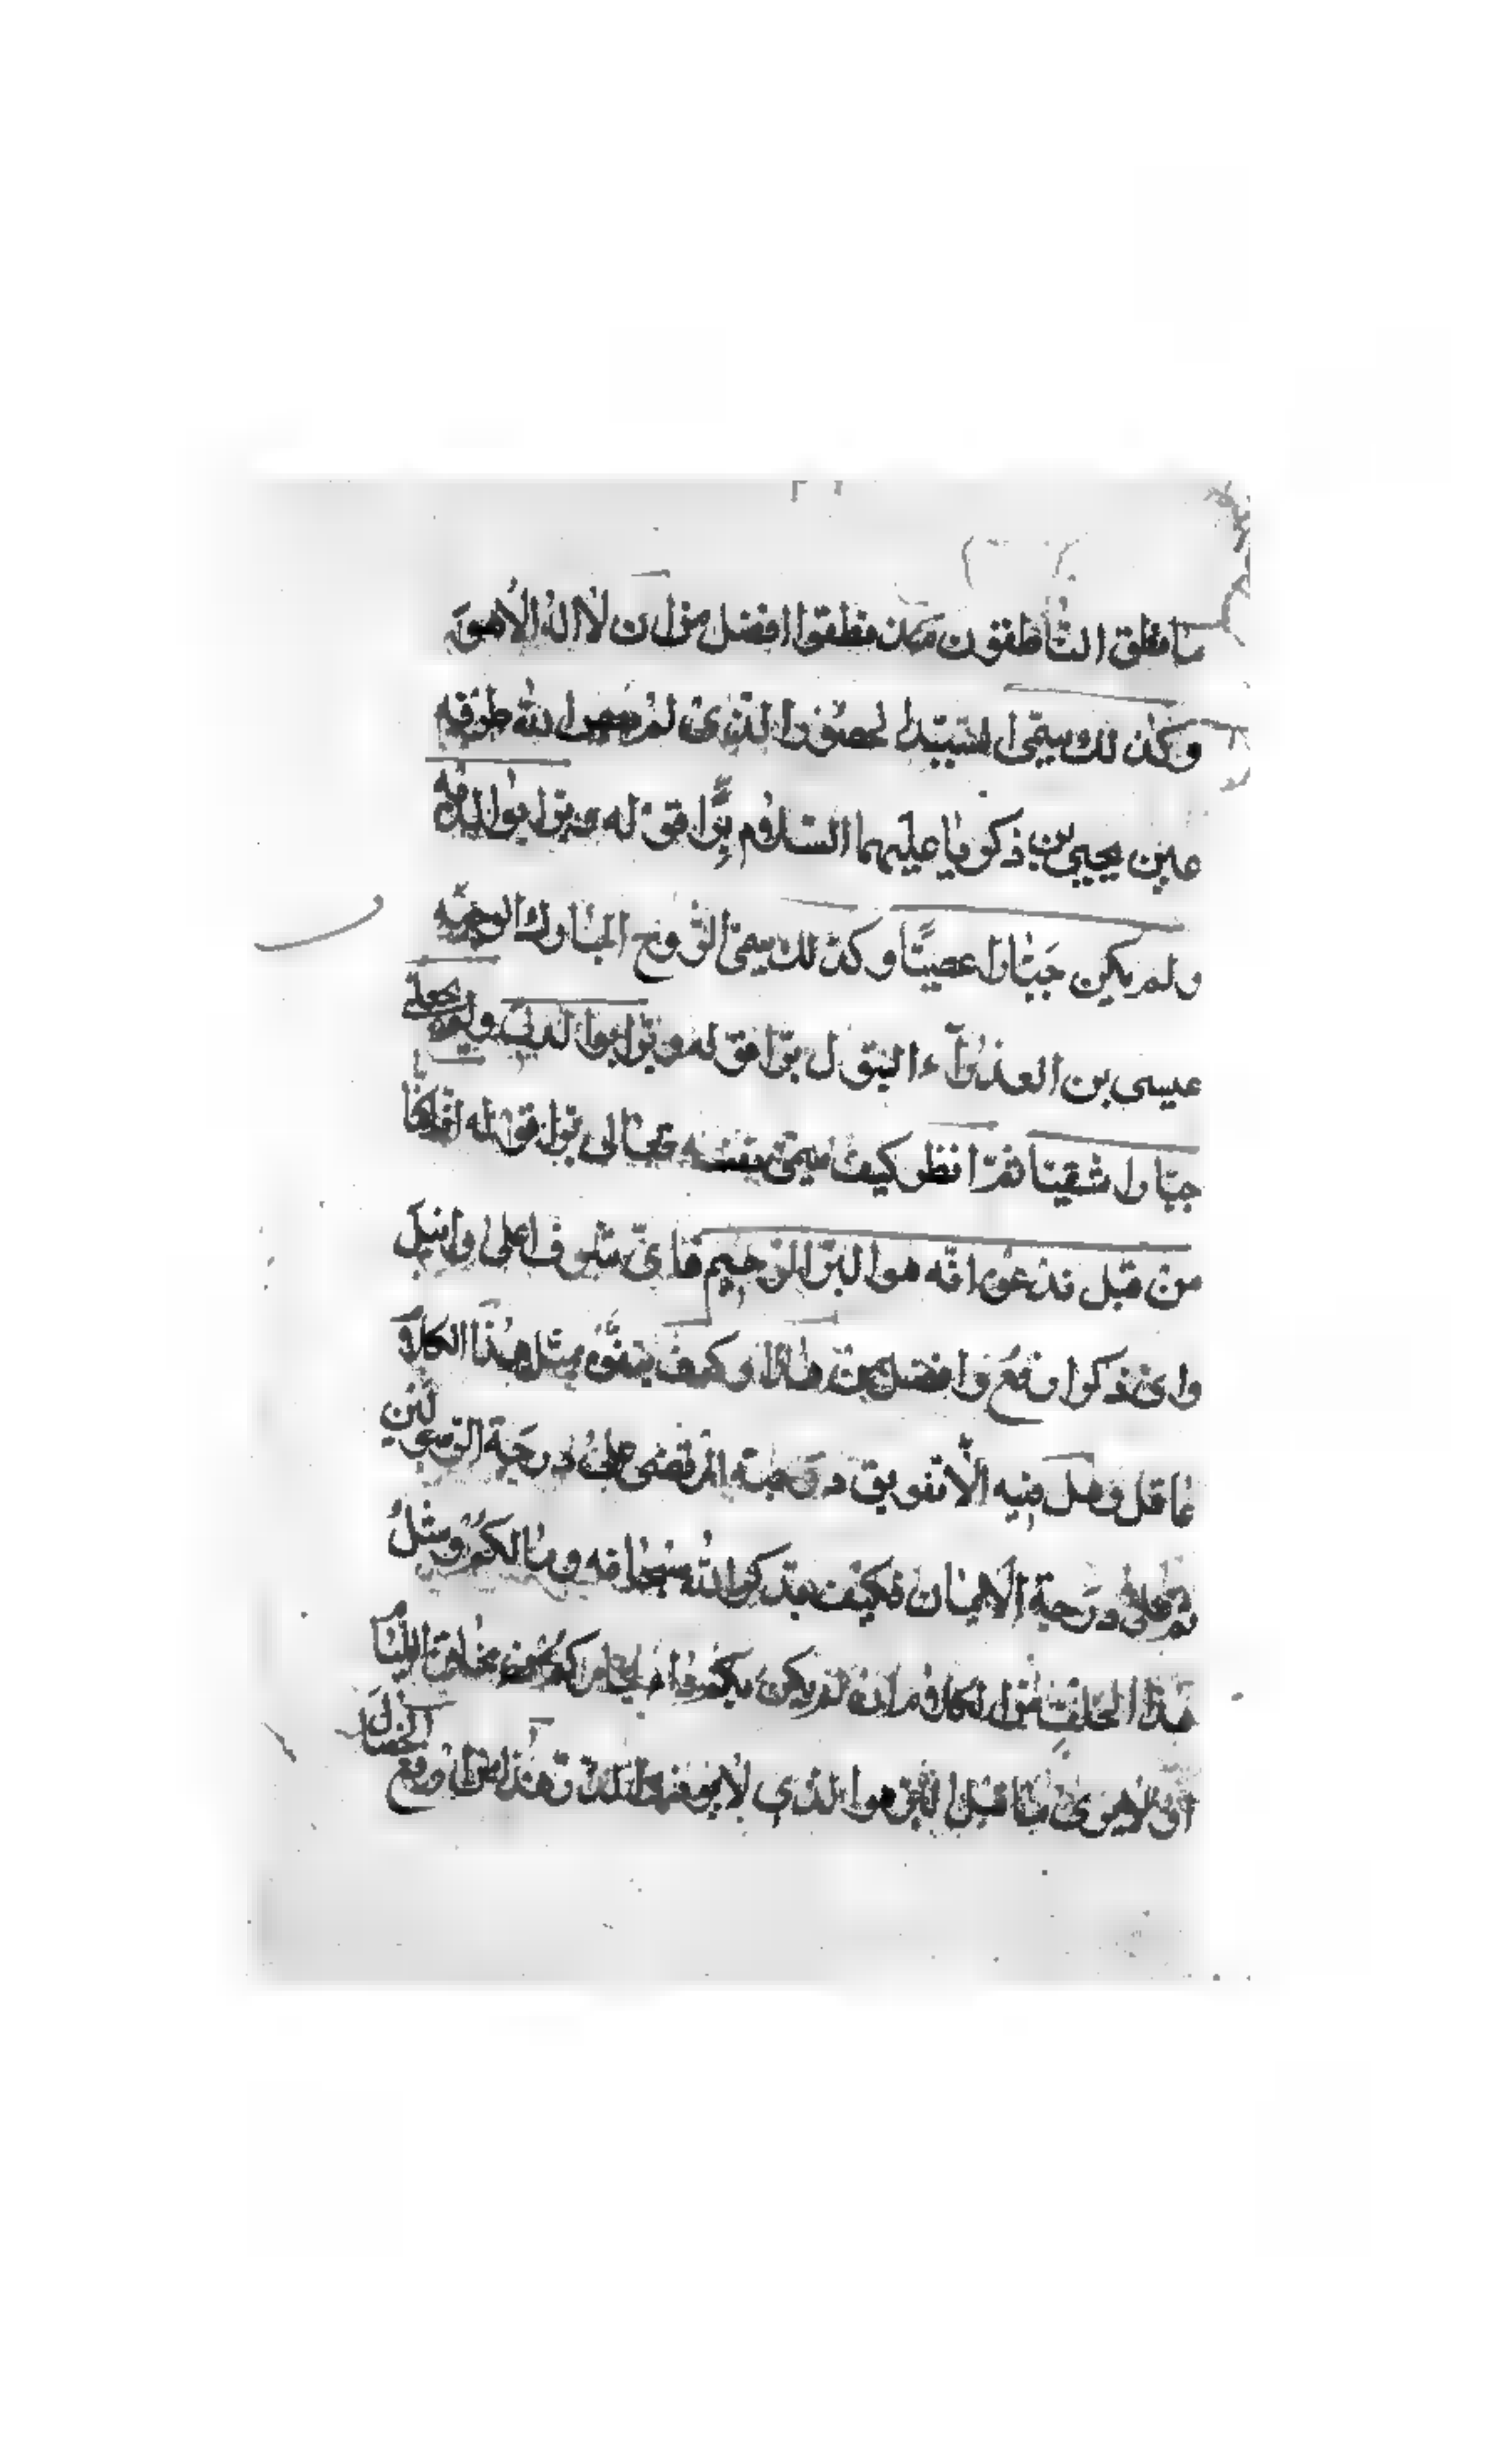 ما نطق الناطقون مذ نطقوا افضل من ان لا اله الا هو
وكذلك سمى السيد الحصور الذي لم يعص الله طرفة
عين يحيى بن ذكريا عليهما السلام برّا في قوله وبرا بوالديه
ولم يكن جبارا عصيّا وكذلك سمى الروح المبارك الوجيه
عيسى بن العذرآء البتول برّا في قوله وبرّا بوالدتي ولم يجعلني
جبّارا شقيّا ثمّ انظر كيف سمى نفسه تعالى برا في قوله انا كنا
من قبل ندعوه انّه هو البرّ الرّحيم فايّ شرف اعلى وانبل
واي ذكر ارفع وافضل من هذا وكيف يتفوّه بمثل هذا الكلام
عاقل وهل فيه الّا تفويق درجته المرتضى على درجة النبيين
ثم على درجة الايمان فكيف بذكر الله سبحانه وما لكم ومثل
هذا الخلف من الكلام ان لم يكن بكم
او لا هوى ما قبل هو الذي لا هذا من ارفع الخصال